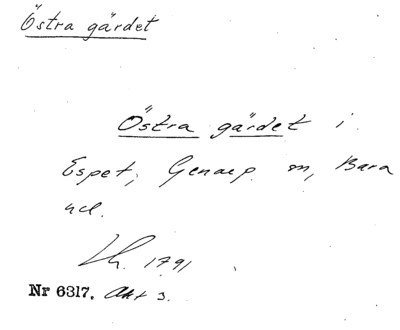 Östra gärdet
Östra gärdet i
Espet, Genarp m, Bara
hd.
Lh. 1791
Nr 6317. Akt 3.